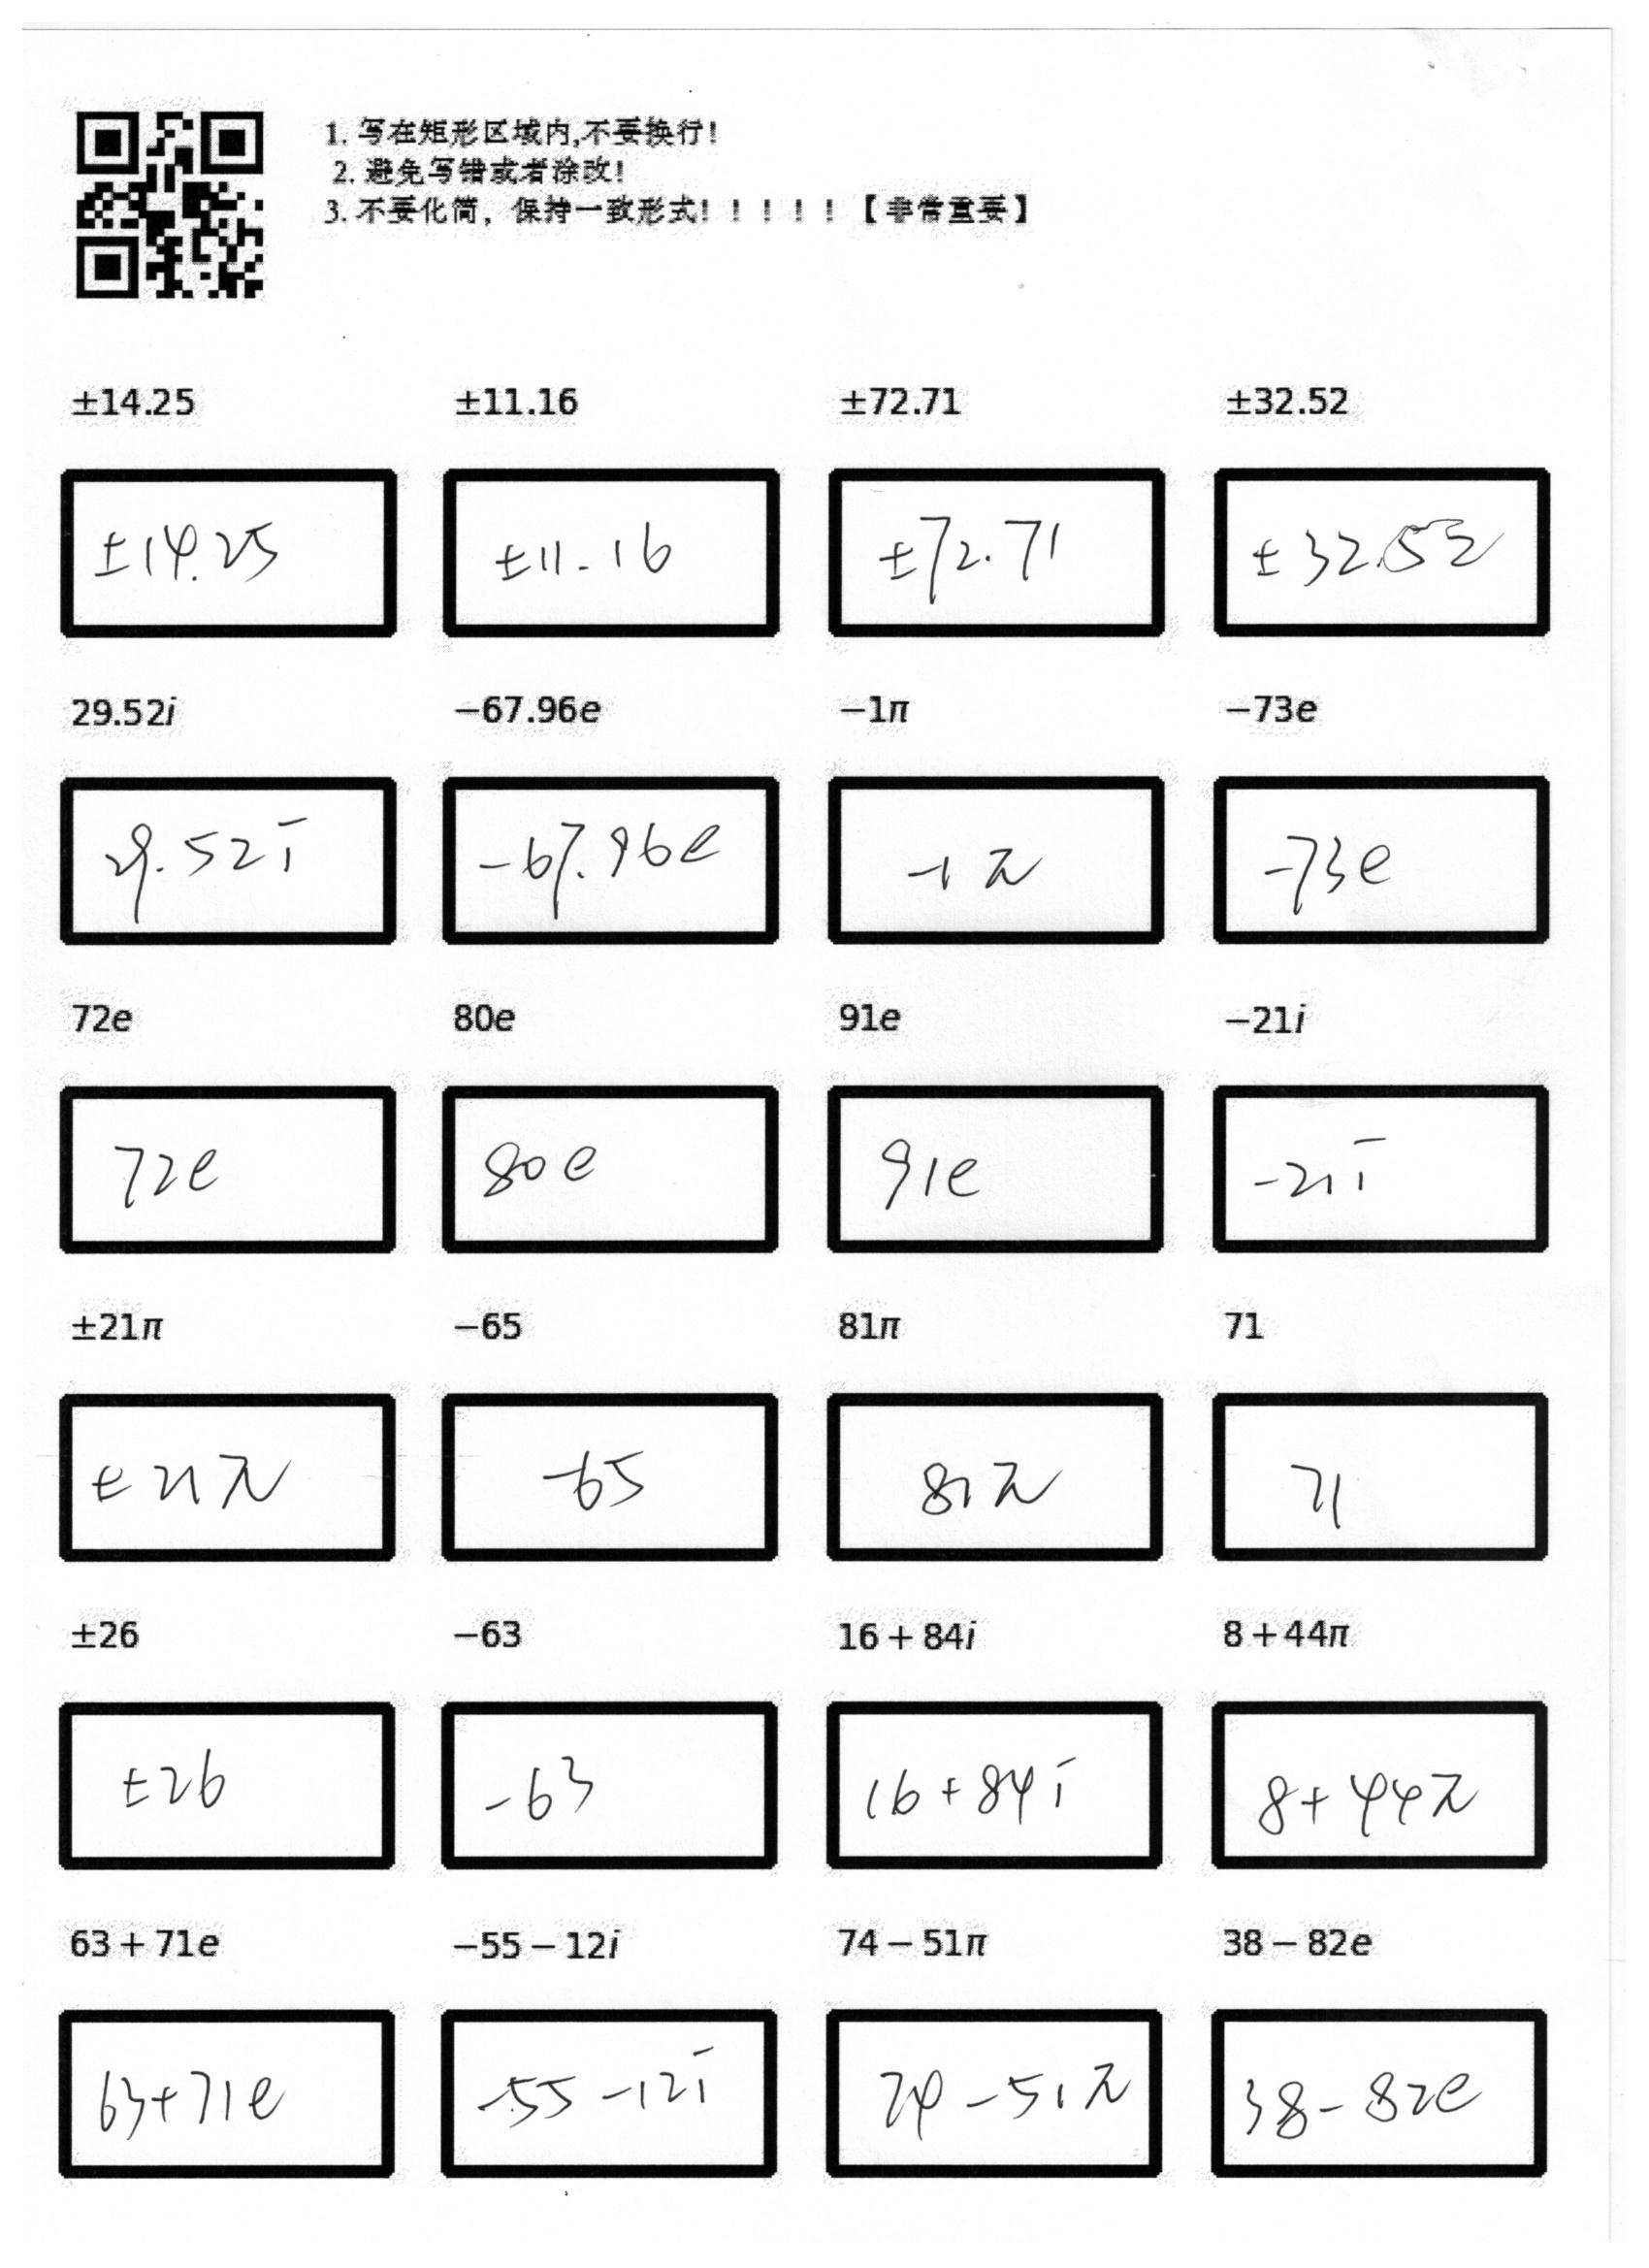 1. 写在矩形区域内,不要换行!
2. 避免写错或者涂改!
3. 不要化简，保持一致形式! ! ! ! ! 【非常重要】
±14.25 ±11.16 ±72.71 ±32.52
±14.25 ±11.16 ±72.71 ±32.52
29.52i −67.96e −1π −73e
29.52i −67.96e −1π −73e
72e 80e 91e −21i
72e 80e 91e −21i
±21π −65 81π 71
±21π −65 81π 71
±26 −63 16+84i 8+44π
±26 −63 16+84i 8+44π
63+71e −55−12i 74−51π 38−82e
63+71e −55−12i 74−51π 38−82e